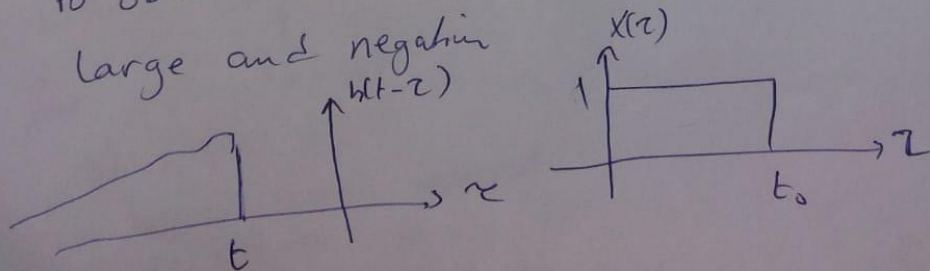 large and negative
h(t-τ)
τ
t
x(τ)
1
τ
t₀